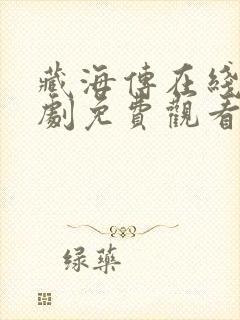 藏海傳在綫
劇免費觀看
绿藥